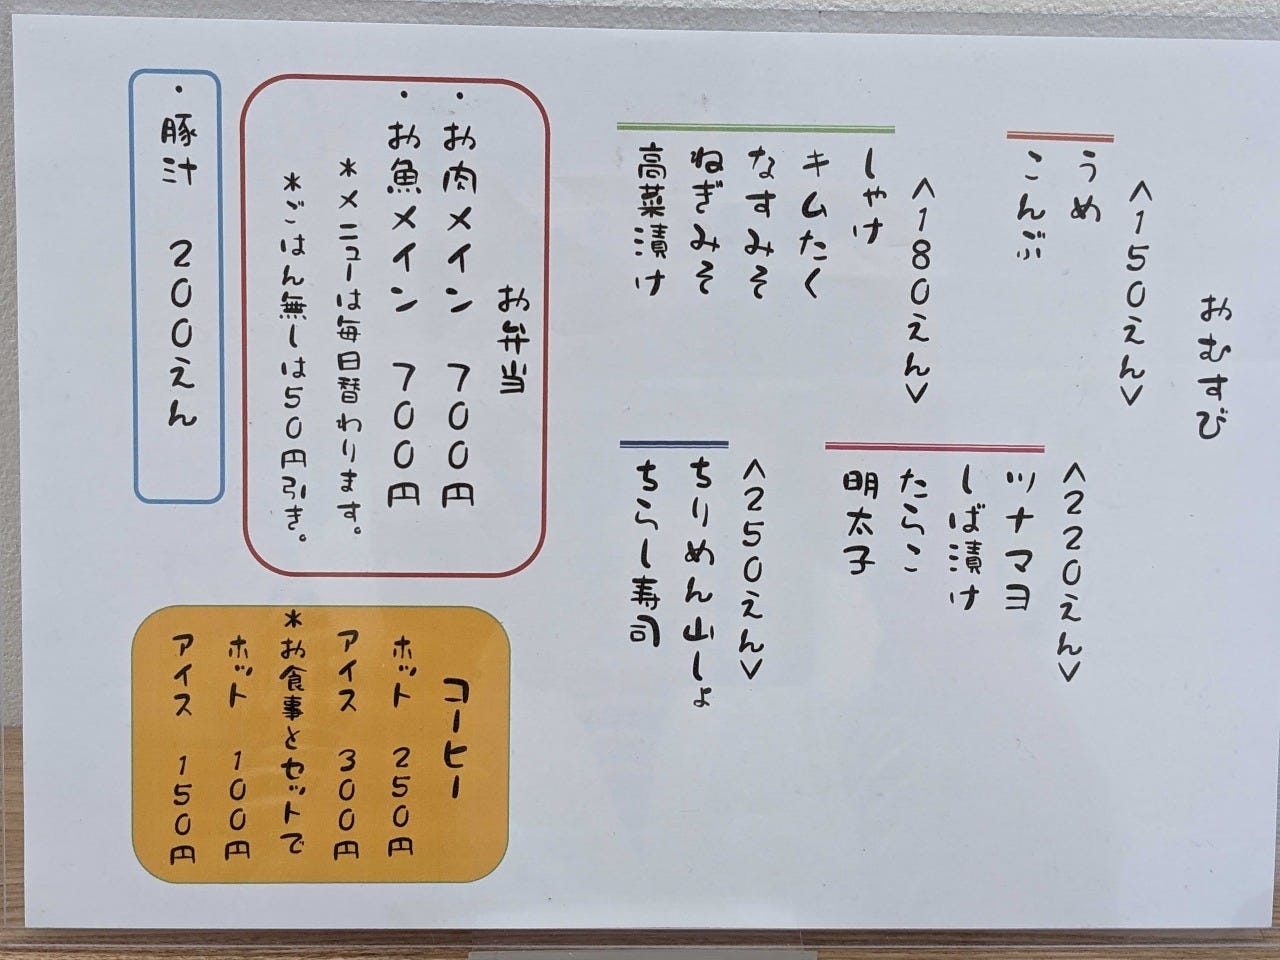 おむすび
<150えん>
うめ
こんぶ
<180えん>
しゃけ
キムたく
なすみそ
ねぎみそ
高菜漬け
<220えん>
ツナマヨ
しば漬け
たらこ
明太子
<250えん>
ちりめん山しょ
ちらし寿司
お弁当
・お肉メイン 700円
・お魚メイン 700円
*メニューは毎日替わります。
*ごはん無しは50円引き。
・豚汁 200えん
コーヒー
ホット 250円
アイス 300円
*お食事とセットで
ホット 100円
アイス 150円